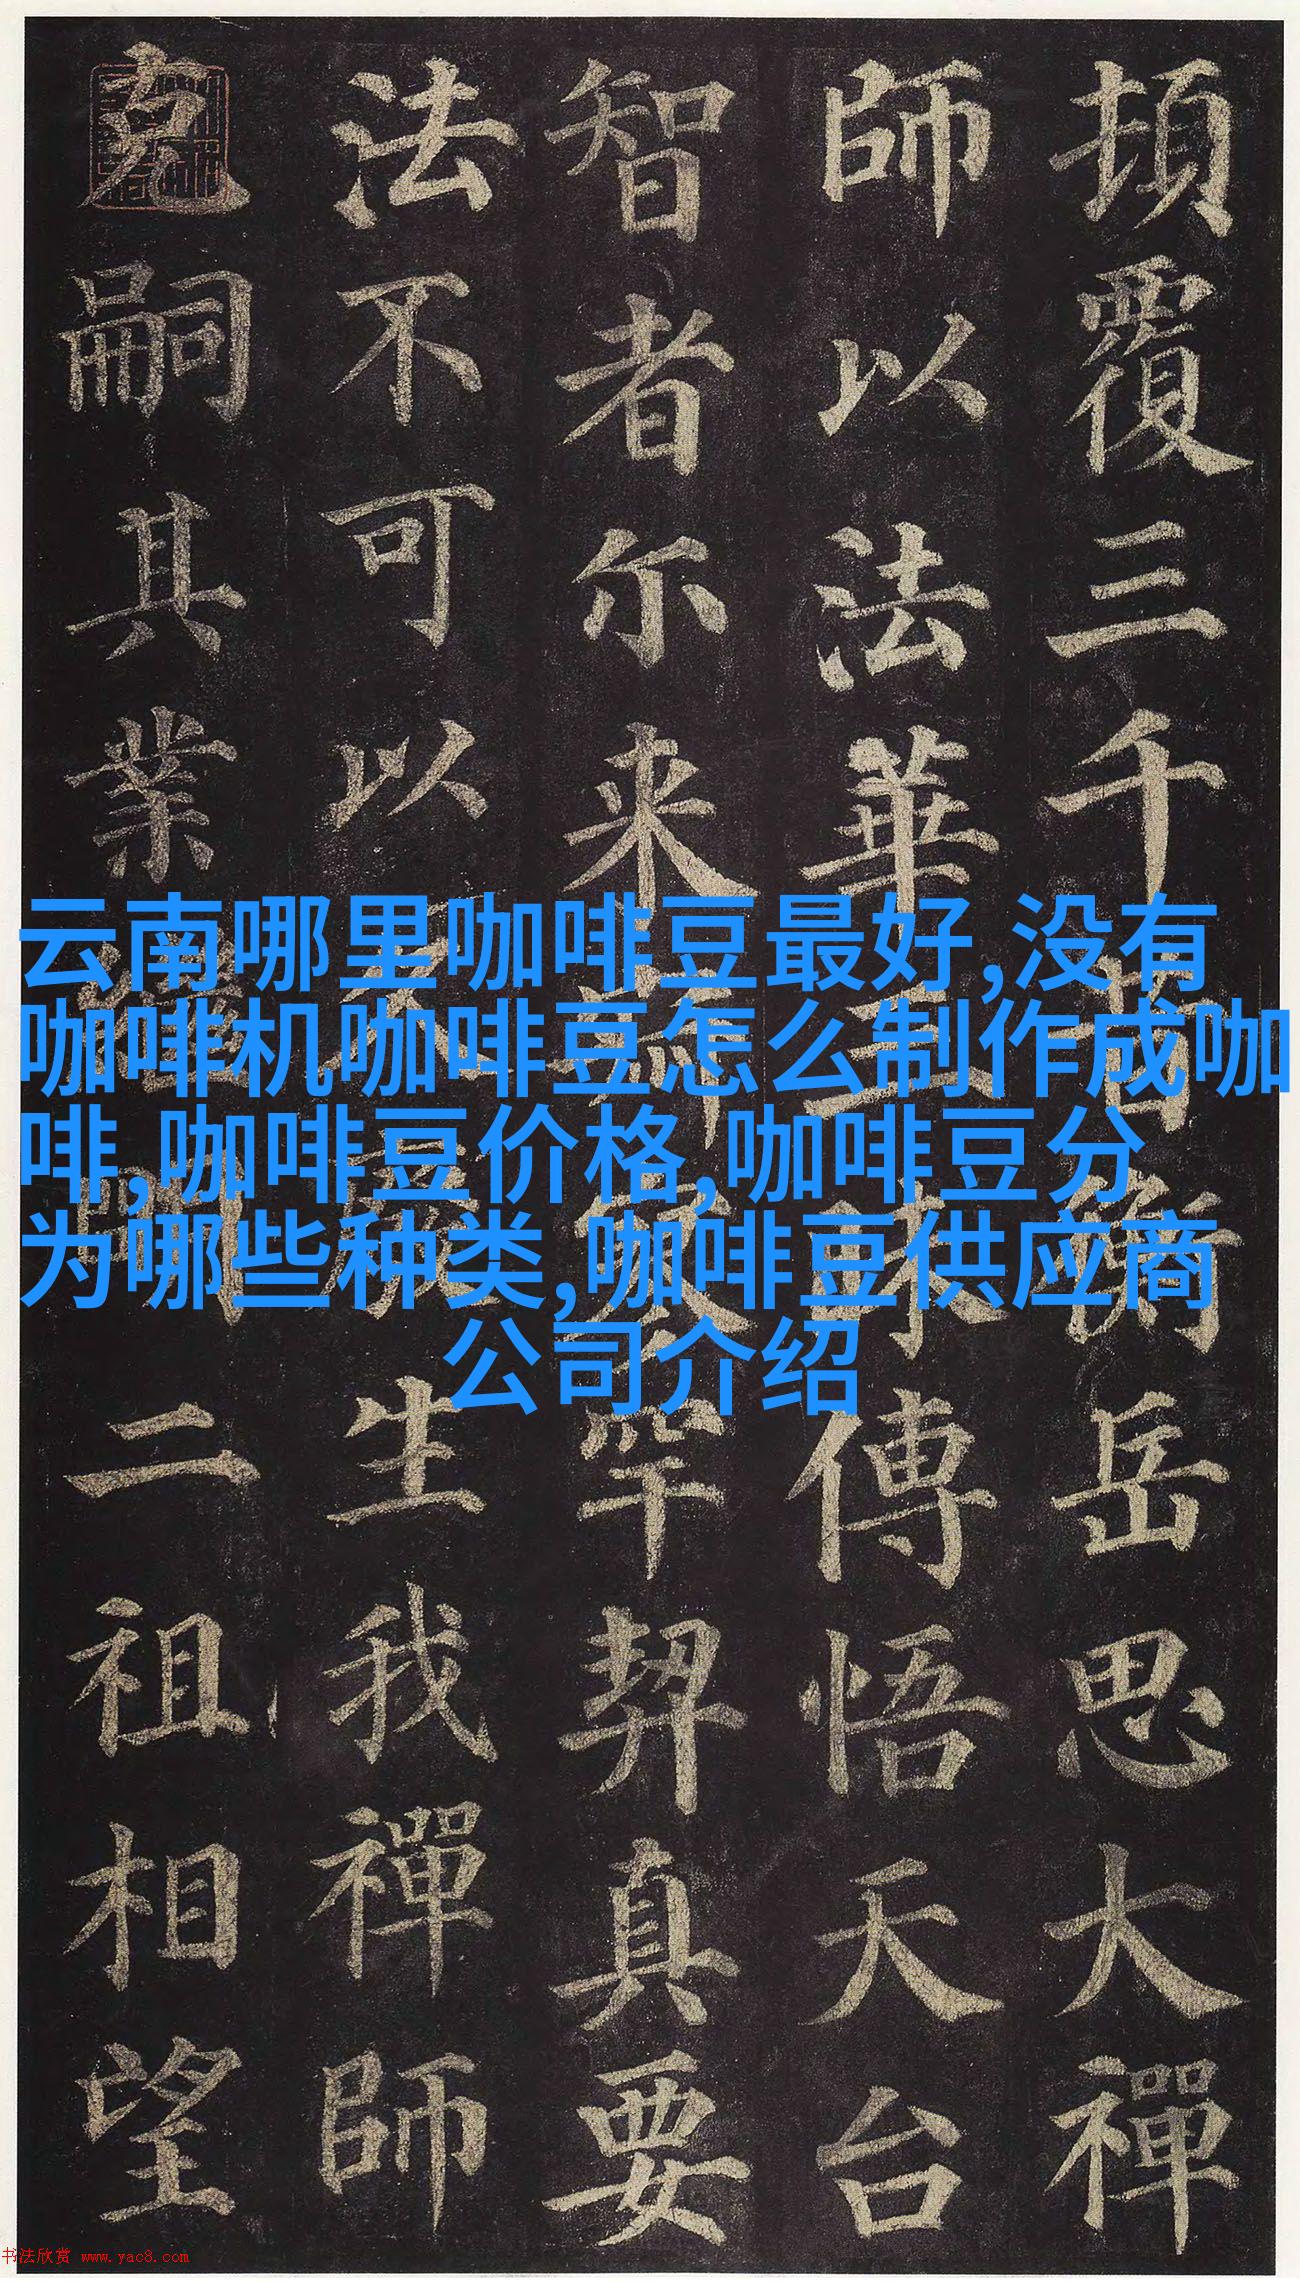 頂覆三千昔衡岳思大禪
師以法華三昧傳悟天台
智者尓来寂寥罕契真要
法不可以久廢生我禪師
克嗣其業繼明二祖相望
云南哪里咖啡豆最好,没有
咖啡机咖啡豆怎么制作成咖
啡,咖啡豆价格,咖啡豆分
为哪些种类,咖啡豆供应商
公司介绍
书法欣赏 www.yac8.com